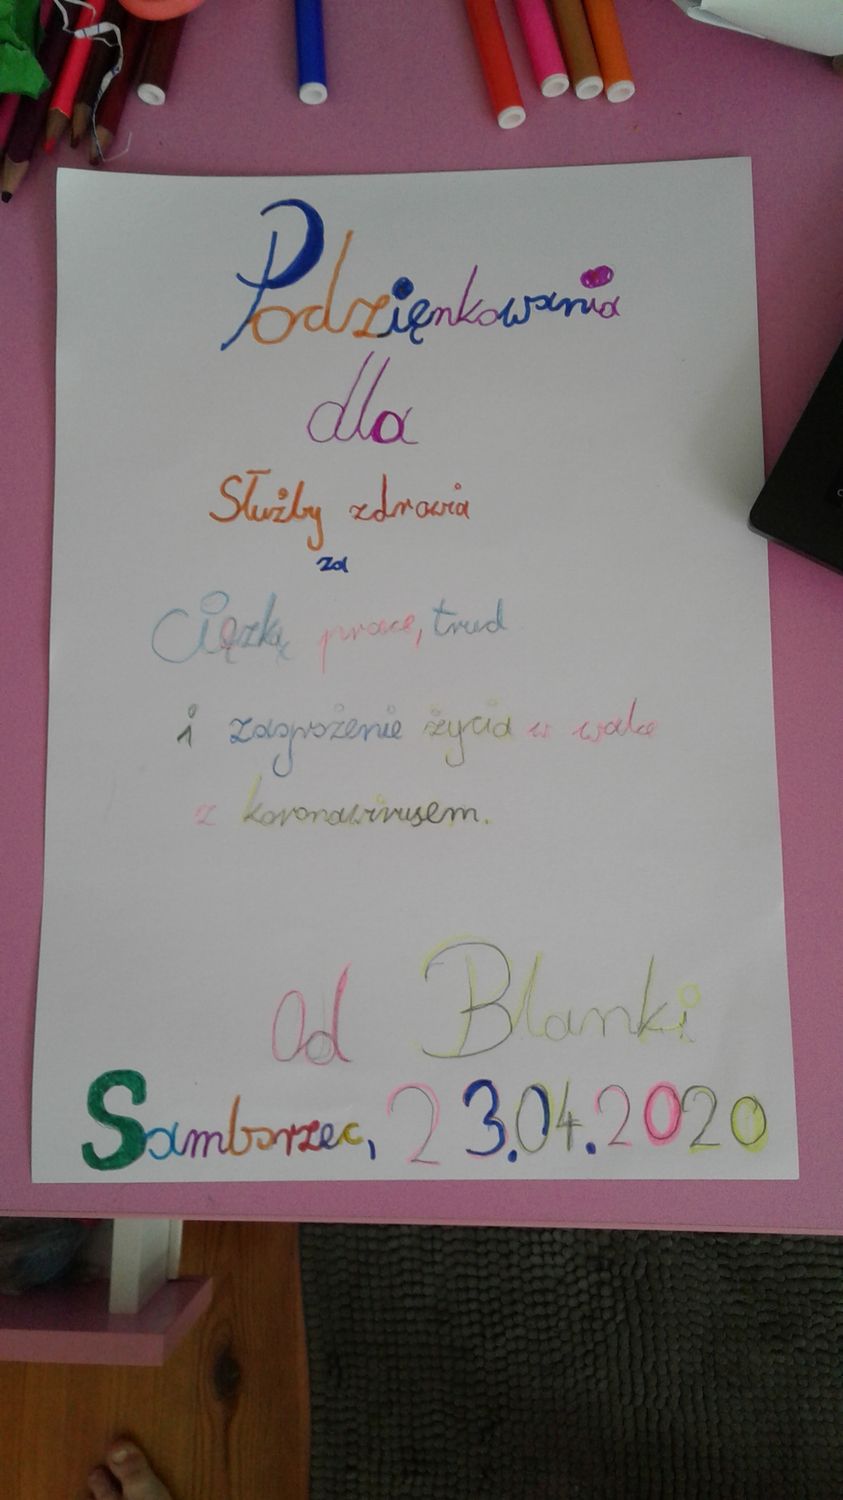 Podzięnkowania
dla
Służby zdrowia
za
Ciężką pracę, trud
i zagrożenie życia w walce
z koronawirusem.
Od Blanki
Samborzec, 23.04.2020